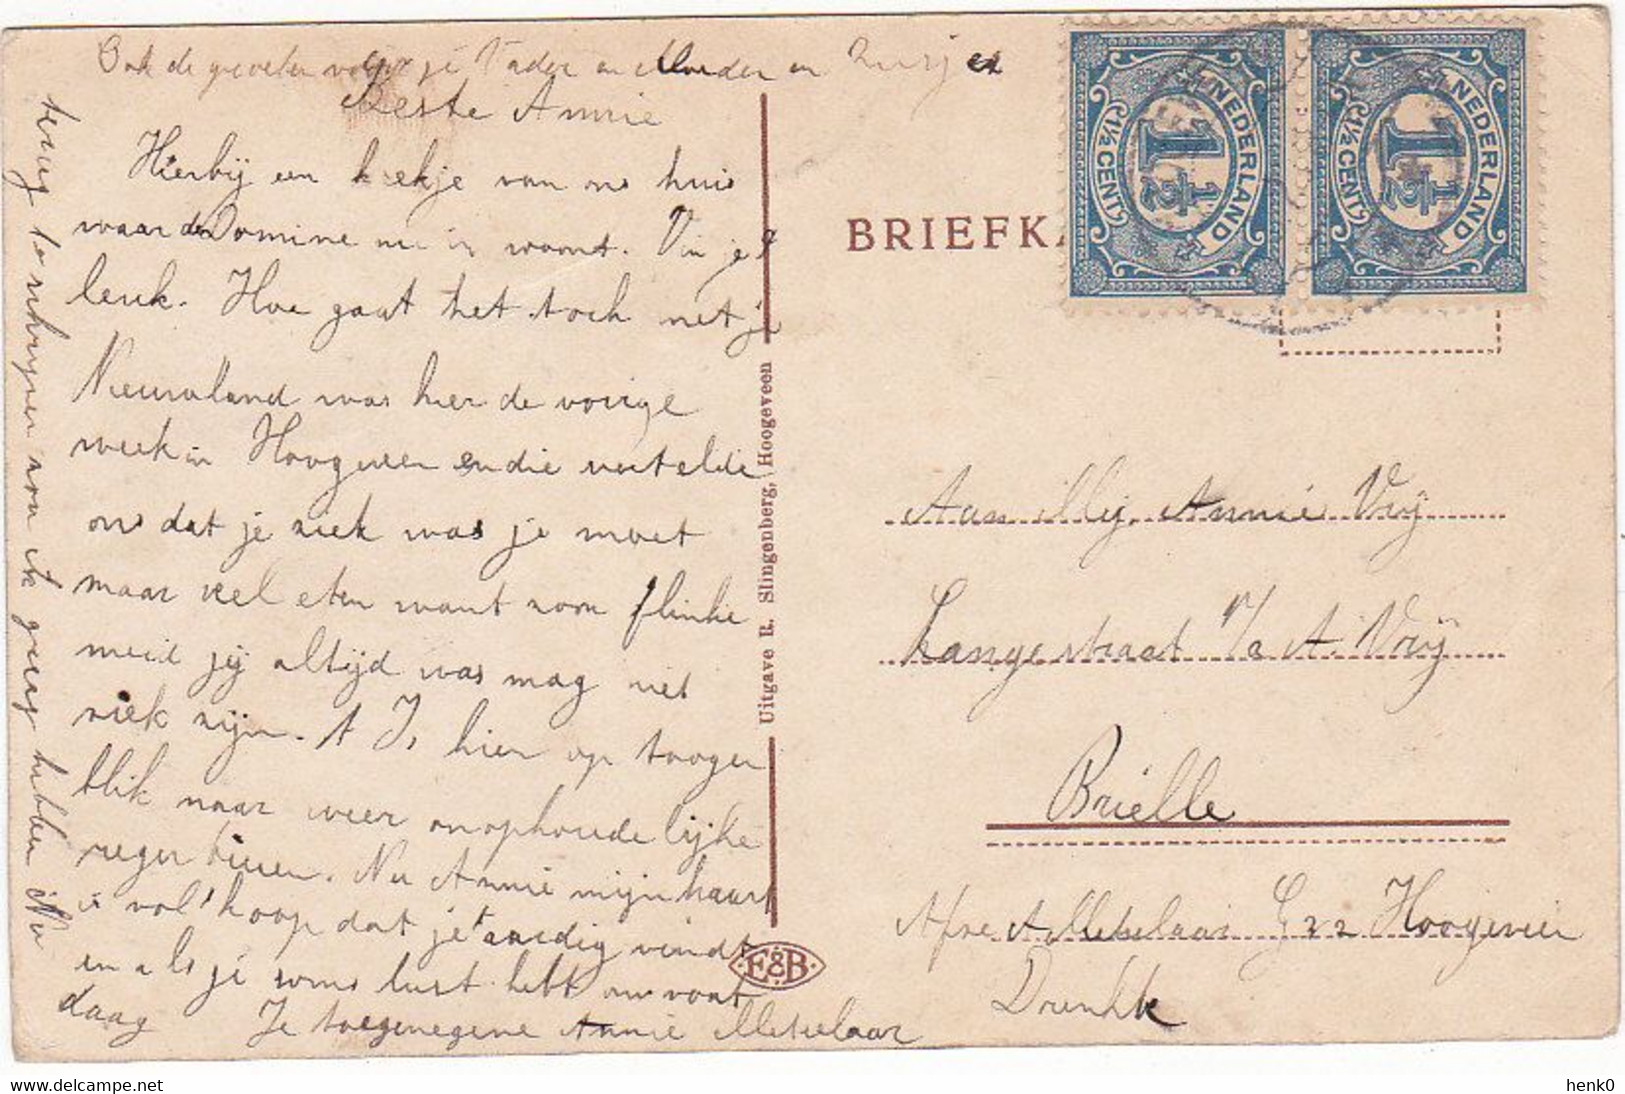 Ook de groeten voor je Vader en Moeder en Zusje
Beste Annie
Hierbij een kiekje van ons huis
waar de Domine nu in woont. Vin je t
leuk. Hoe gaat het toch met je
Nieuwland was hier de vorige
week in Hoogeveen en die vertelde
ons dat je ziek was je moet
maar veel eten want zoon flinke
meid jij altijd was mag niet
ziek zijn. t Is hier op t ooger
blik naar weer onophoudelijke
regen buien. Nu Annie mijn kaart
is vol 'k hoop dat je t aardig vindt
en als je soms lust hebt om vont
daag Je toegenegene Annie Metselaar
terug te schrijven zou ik graag hebben Nu
BRIEFKA
NEDERLAND
1½
1½ CENT
NEDERLAND
1½
1½ CENT
Uitgave R. Slingenberg, Hoogeveen
E&B
Aan Mej. Annie Vrij
Langestraat p/a A. Vrij
Brielle
Afze A Metselaar G 22 Hoogeveen
Drenthe
henk0